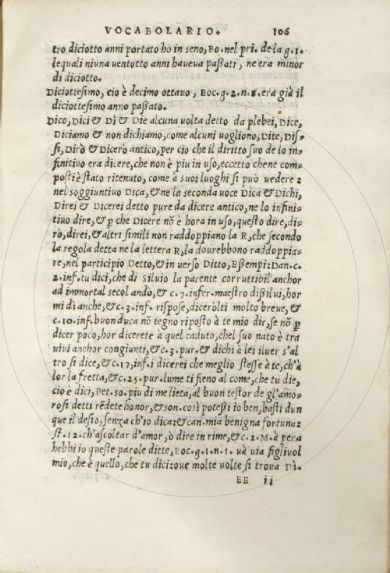 VOCABOLARIO. 106
tro diciotto anni portato ho in seno, BO. nel pri. de la g. 1.
le quali niuna uentotto anni haueua paßati, ne era minor
di diciotto.
Diciottesimo, cio è decimo ottauo, BOC. g. 2. n. 8. era già il
diciottesimo anno paßato.
DICO, DICI & DI & Die alcuna uolta detto da plebei, DICE,
Diciamo & non dichiamo, come alcuni uogliono, Dite, Dis-
si, Dirò & Dicerò antico, per cio che il diritto suo de lo in-
finitiuo era dicere, che non è piu in uso, eccetto che ne com-
posti è stato ritenuto, come a suoi luoghi si può uedere:
nel soggiuntiuo Dica, & ne la seconda uoce Dica & Dichi,
Direi & Dicerei detto pure da dicere antico, ne lo infini-
tiuo dire, & p che Dicere nõ è hora in uso, questo dire, di-
rò, direi, & altri simili non raddoppiano la R, che secondo
la regola detta ne la lettera R, la dourebbono raddoppia-
re, nel participio Detto, & in uerso Ditto, Eßempi: Dan. c.
2. inf. tu dici, che di Siluio la parente corruttibil' anchor
ad immortal secolo andò, & c. 7. infer. maestro dißi lui, hor
mi dì anche, & c. 3. inf. rispose, dicerolti molto breue, &
c. 10. inf. buon duca nõ tegno riposto à te mio dir, se nõ p
dicer poco, hor dicerete à quel caduto, chel suo nato è tra
uiui anchor congiunti, & c. 3. pur. & dichi à lei il uer s'al
tro si dice, & c. 17. inf. i dicerei che meglio stesse à te, ch'à
lor la fretta, & c. 25. pur. lume ti fieno al come, che tu die,
cio è dici, Pet. so. piu di me lieta, al buon testor de gl'amo-
rosi detti rédete honor, & son. così potess'io ben, basti dun
que il desio, senza ch'io dica: & can. mia benigna fortuna:
st. 12. ch'ascoltar d'amor, ò dire in rime, & c. 2. M. à pena
hebbi io queste parole ditte, BOC. g. 1. n. 1. uà uia figliuol
mio, che è quello, che tu dici? oue molte uolte si troua DI.
EE ii